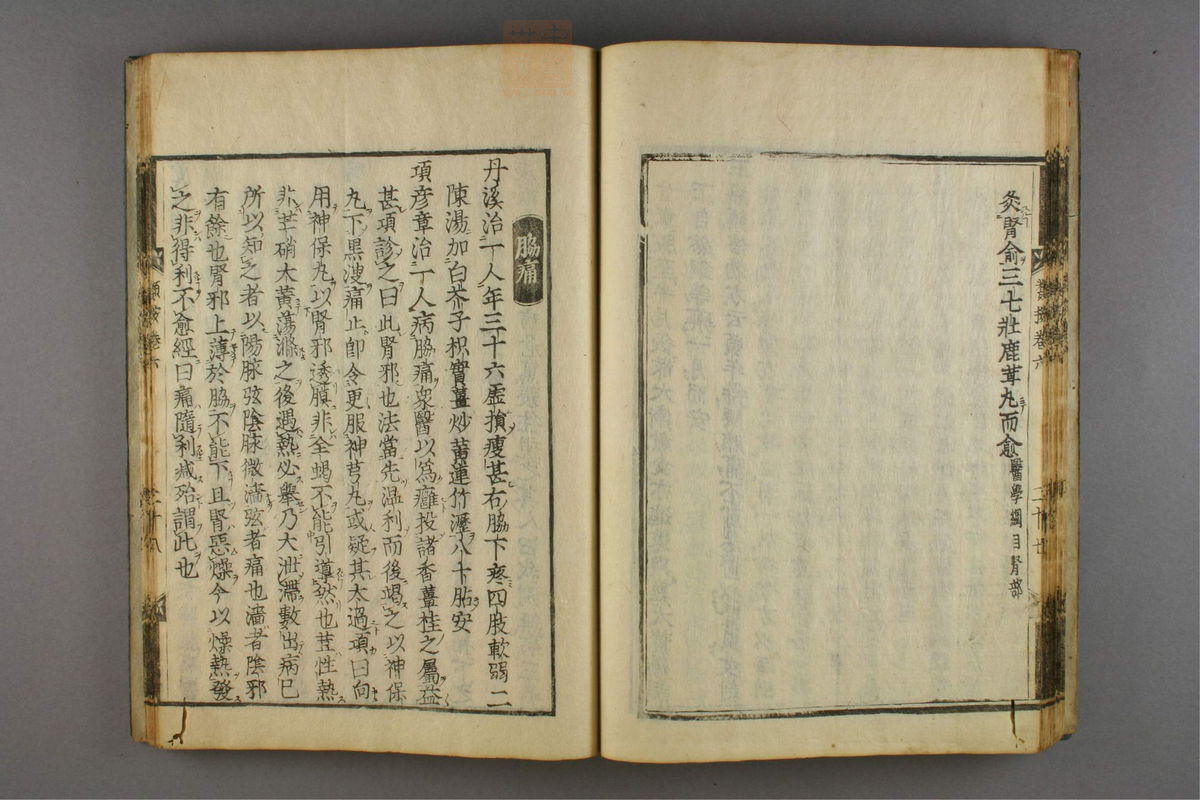 灸腎俞三七壯鹿茸丸而愈醫學綱目腎部
類按卷六
二十七
脇痛
丹溪治一人年三十六虛損瘦甚右脇下疼四肢軟弱二
陳湯加白芥子枳實薑炒黃連竹瀝八十貼安
項彥章治一人病脇痛衆醫以爲癰投諸香薑桂之屬益
甚項診之曰此腎邪也法當先溫利而後竭之以神保
丸下黑溲痛止卽令更服神芎丸或疑其太過項曰向
用神保丸以腎邪透膜非全蝎不能引導然巴荳性熱
非芒硝大黃蕩滌之後遇熱必舉乃大泄滯數出病已
所以知之者以陽脉弦陰脉微濇弦者痛也濇者陰邪
有餘也腎邪上薄於脇不能下且腎惡燥今以燥熱發
之非得利不愈經曰痛隨利減殆謂此也
類按卷六
二十八